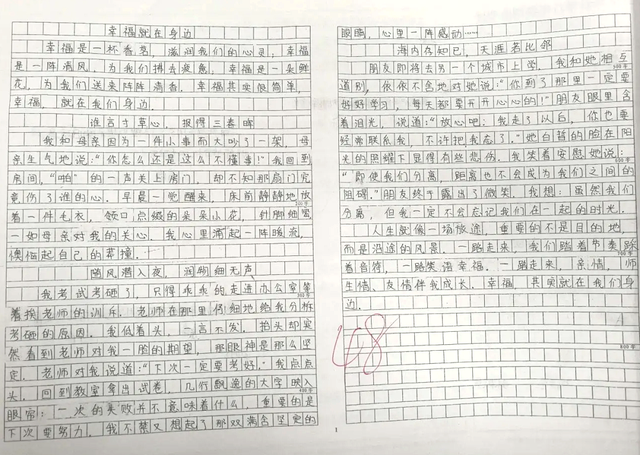 幸福就在身边
幸福是一杯香茗,滋润我们的心灵;幸福
是一阵清风,为我们拂去疲惫;幸福是一朵鲜
花,为我们送来阵阵清香。幸福其实很简单,
幸福,就在我们身边。
谁言寸草心,报得三春晖
我和母亲因为一件小事而大吵了一架,母
亲生气地说:“你怎么还是这么不懂事!”我回到
房间,“啪”的一声关上房门,却不知那扇门究
竟伤了谁的心。早晨一觉醒来,床前静静地放
着一件毛衣,领口点缀的朵朵小花,针脚细密
一如母亲对我的关心。我心里涌起一阵暖流,
懊悔起自己的莽撞。
随风潜入夜,润物细无声
我考试考砸了,只得乖乖的走进办公室等
着挨老师的训斥。老师在那里仔细地给我分析
考砸的原因。我低着头,一言不发,抬头却突
然看到老师对我一脸的期望,那眼神是那么坚
定,老师对我说道:“下次一定要考好。”我点点
头,回到教室拿出试卷,几行飘逸的大字映入
眼密:一次的失败并不意味着什么,重要的是
下次要努力。我不禁又想起了那双满含坚定的
眼睛,心里一阵感动……
海内存知己,天涯若比邻
朋友即将去另一个城市上学,我和她相互
道别,依依不舍地对她说:“你到了那里一定要
好好学习,每天都要开开心心的!”朋友眼里含
着泪光,说道:“放心吧!我走了以后,你也要
经常联系我,不许把我忘了。”她白皙的脸在阳
光的照耀下显得有些悲伤。我笑着安慰她说:
“即使我们分离,距离也不会成为我们之间的
阻碍。”朋友终于露出了微笑。我想:虽然我们
分离,但我一定不会忘记我们在一起的时光。
人生就像一场旅途,重要的不是目的地,
而是沿途的风景。一路走来,我们踏着节奏踩
着音符,一路笑语幸福。一路走来,亲情、师
生情、友情伴我成长。幸福,其实就在我们身
边。
48